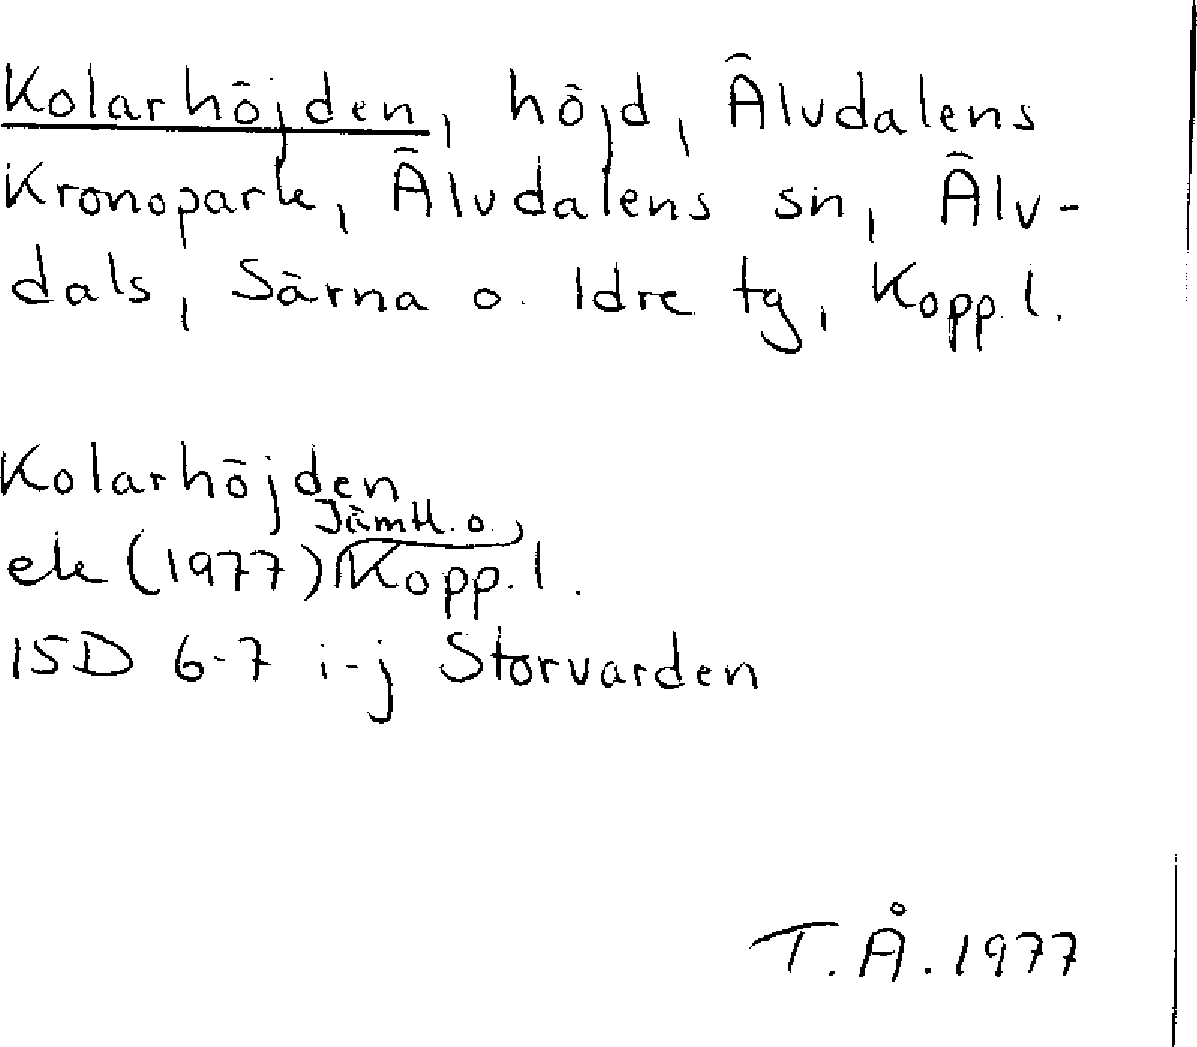 Kolarhöjden, höjd, Älvdalens
Kronopark, Älvdalens sn, Älv-
dals, Särna o. Idre tg, Kopp. l.
Kolarhöjden
Jämtl. o.
ek (1977) Kopp. l.
15D 6-7 i-j Storvarden
T.Å. 1977